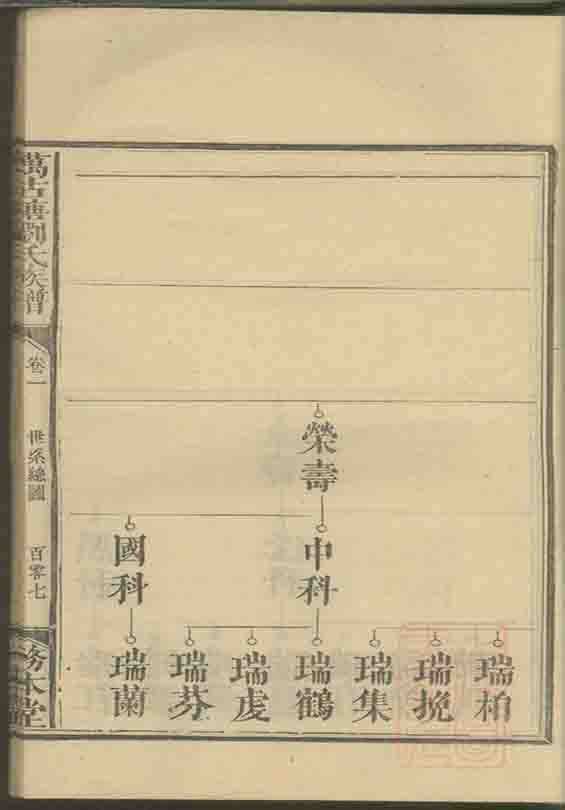 榮壽
中科
國科
瑞柏
瑞挽
瑞集
瑞鶴
瑞虔
瑞芬
瑞蘭
萬古塘劉氏族譜
卷一
世系總圖
百零七
務本堂